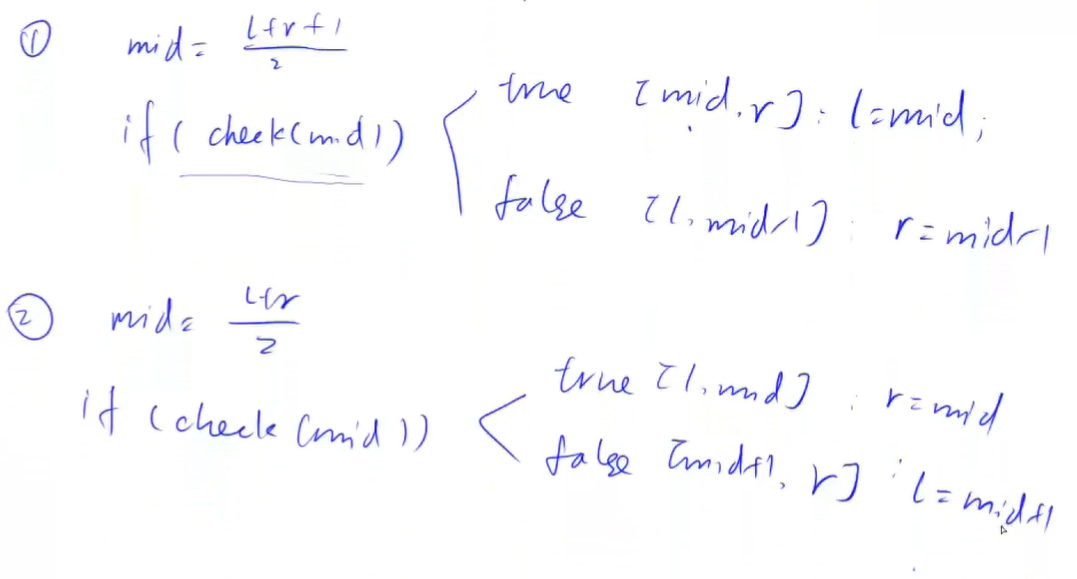 ① mid = l+r+1 / 2
if ( check(mid))
true [mid, r] : l=mid;
false [l, mid-1] : r=mid-1
② mid = l+r / 2
if (check (mid))
true [l, mid] : r=mid
false [mid+1, r] : l=mid+1